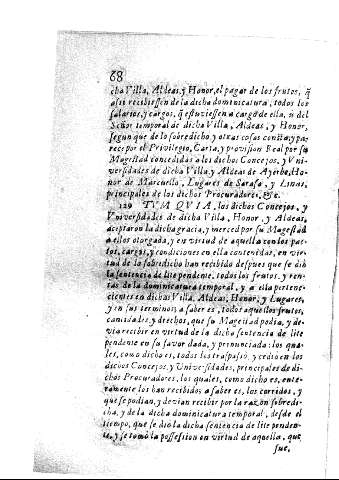 68
cha Villa, Aldeas, y Honor, el pagar de los frutos, q̃
assi recibiessen de la dicha dominicatura, todos los
salarios, y cargos, q̃ estuviessen a cargo de ella, ò del
Señor temporal de dicha Villa, Aldeas, y Honor,
segun que de lo sobredicho, y otras cosas consta, y pa-
rece por el Privilegio, Carta, y provision Real por su
Magestad concedidas a los dichos Concejos, y Uni-
versidades de dicha Villa, y Aldeas de Ayerbe, Ho-
nor de Marcuello, Lugares de Sarasa, y Linas,
principales de los dichos Procuradores, &c.
129 ITEM QVIA, los dichos Concejos, y
Vniversidades de dicha Villa, Honor, y Aldeas,
aceptaron la dicha gracia, y merced por su Magestad
a ellos otorgada, y en virtud de aquella con los pac-
tos, cargos, y condiciones en ella contenidas, en vir-
tud de lo sobredicho han recibido despues que se diò
la sentencia de lite pendente, todos los frutos, y ren-
tas de la dominicatura temporal, y a ella pertene-
cientes en dichas Villa, Aldeas, Honor, y Lugares,
y en sus terminos, a saber es, todos aquellos frutos,
cantidades, y drechos, que su Magestad podia, y de-
via recibir en virtud de la dicha sentencia de lite
pendente en su favor dada, y pronunciada: los qua-
les, como dicho es, todos los traspassò, y cediò en los
dichos Concejos, y Universidades, principales de di-
chos Procuradores, los quales, como dicho es, ente-
ramente los han recibidos a saber es, los corridos, y
que se podian, y devian recibir por la razon sobredi-
cha, y de la dicha dominicatura temporal, desde el
tiempo, que se diò la dicha sentencia de lite penden-
te, y se tomò la possession en virtud de aquella, que
fue,